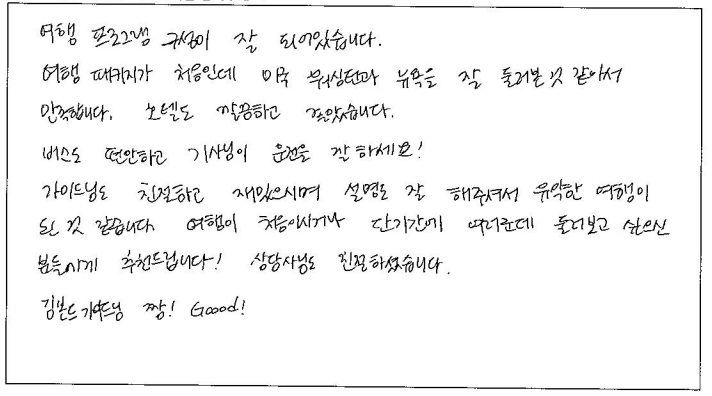 여행 프로그램 구성이 잘 되어있습니다.
여행 패키지가 처음인데 미국 워싱턴과 뉴욕을 잘 둘러본 것 같아서
만족합니다. 호텔도 깔끔하고 좋았습니다.
버스도 편안하고 기사님이 운전을 잘 하세요!
가이드님도 친절하고 재밌으시며 설명도 잘 해주셔서 유익한 여행이
된 것 같습니다. 여행이 처음이시거나 단기간에 여러군데 둘러보고 싶으신
분들에게 추천드립니다! 상담사님도 친절하셨습니다.
김본드가이드님 짱! Goood!